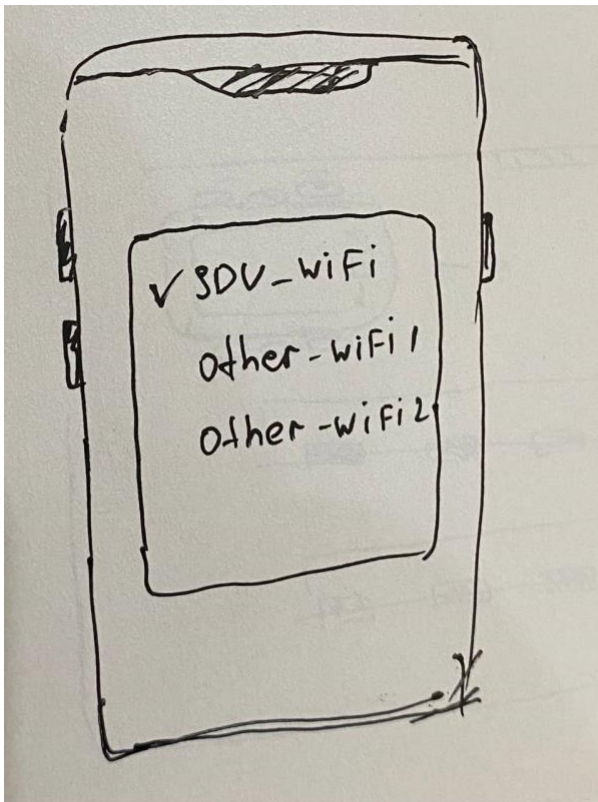 ✓ SDV_WiFi
Other-WiFi1
Other-WiFi2